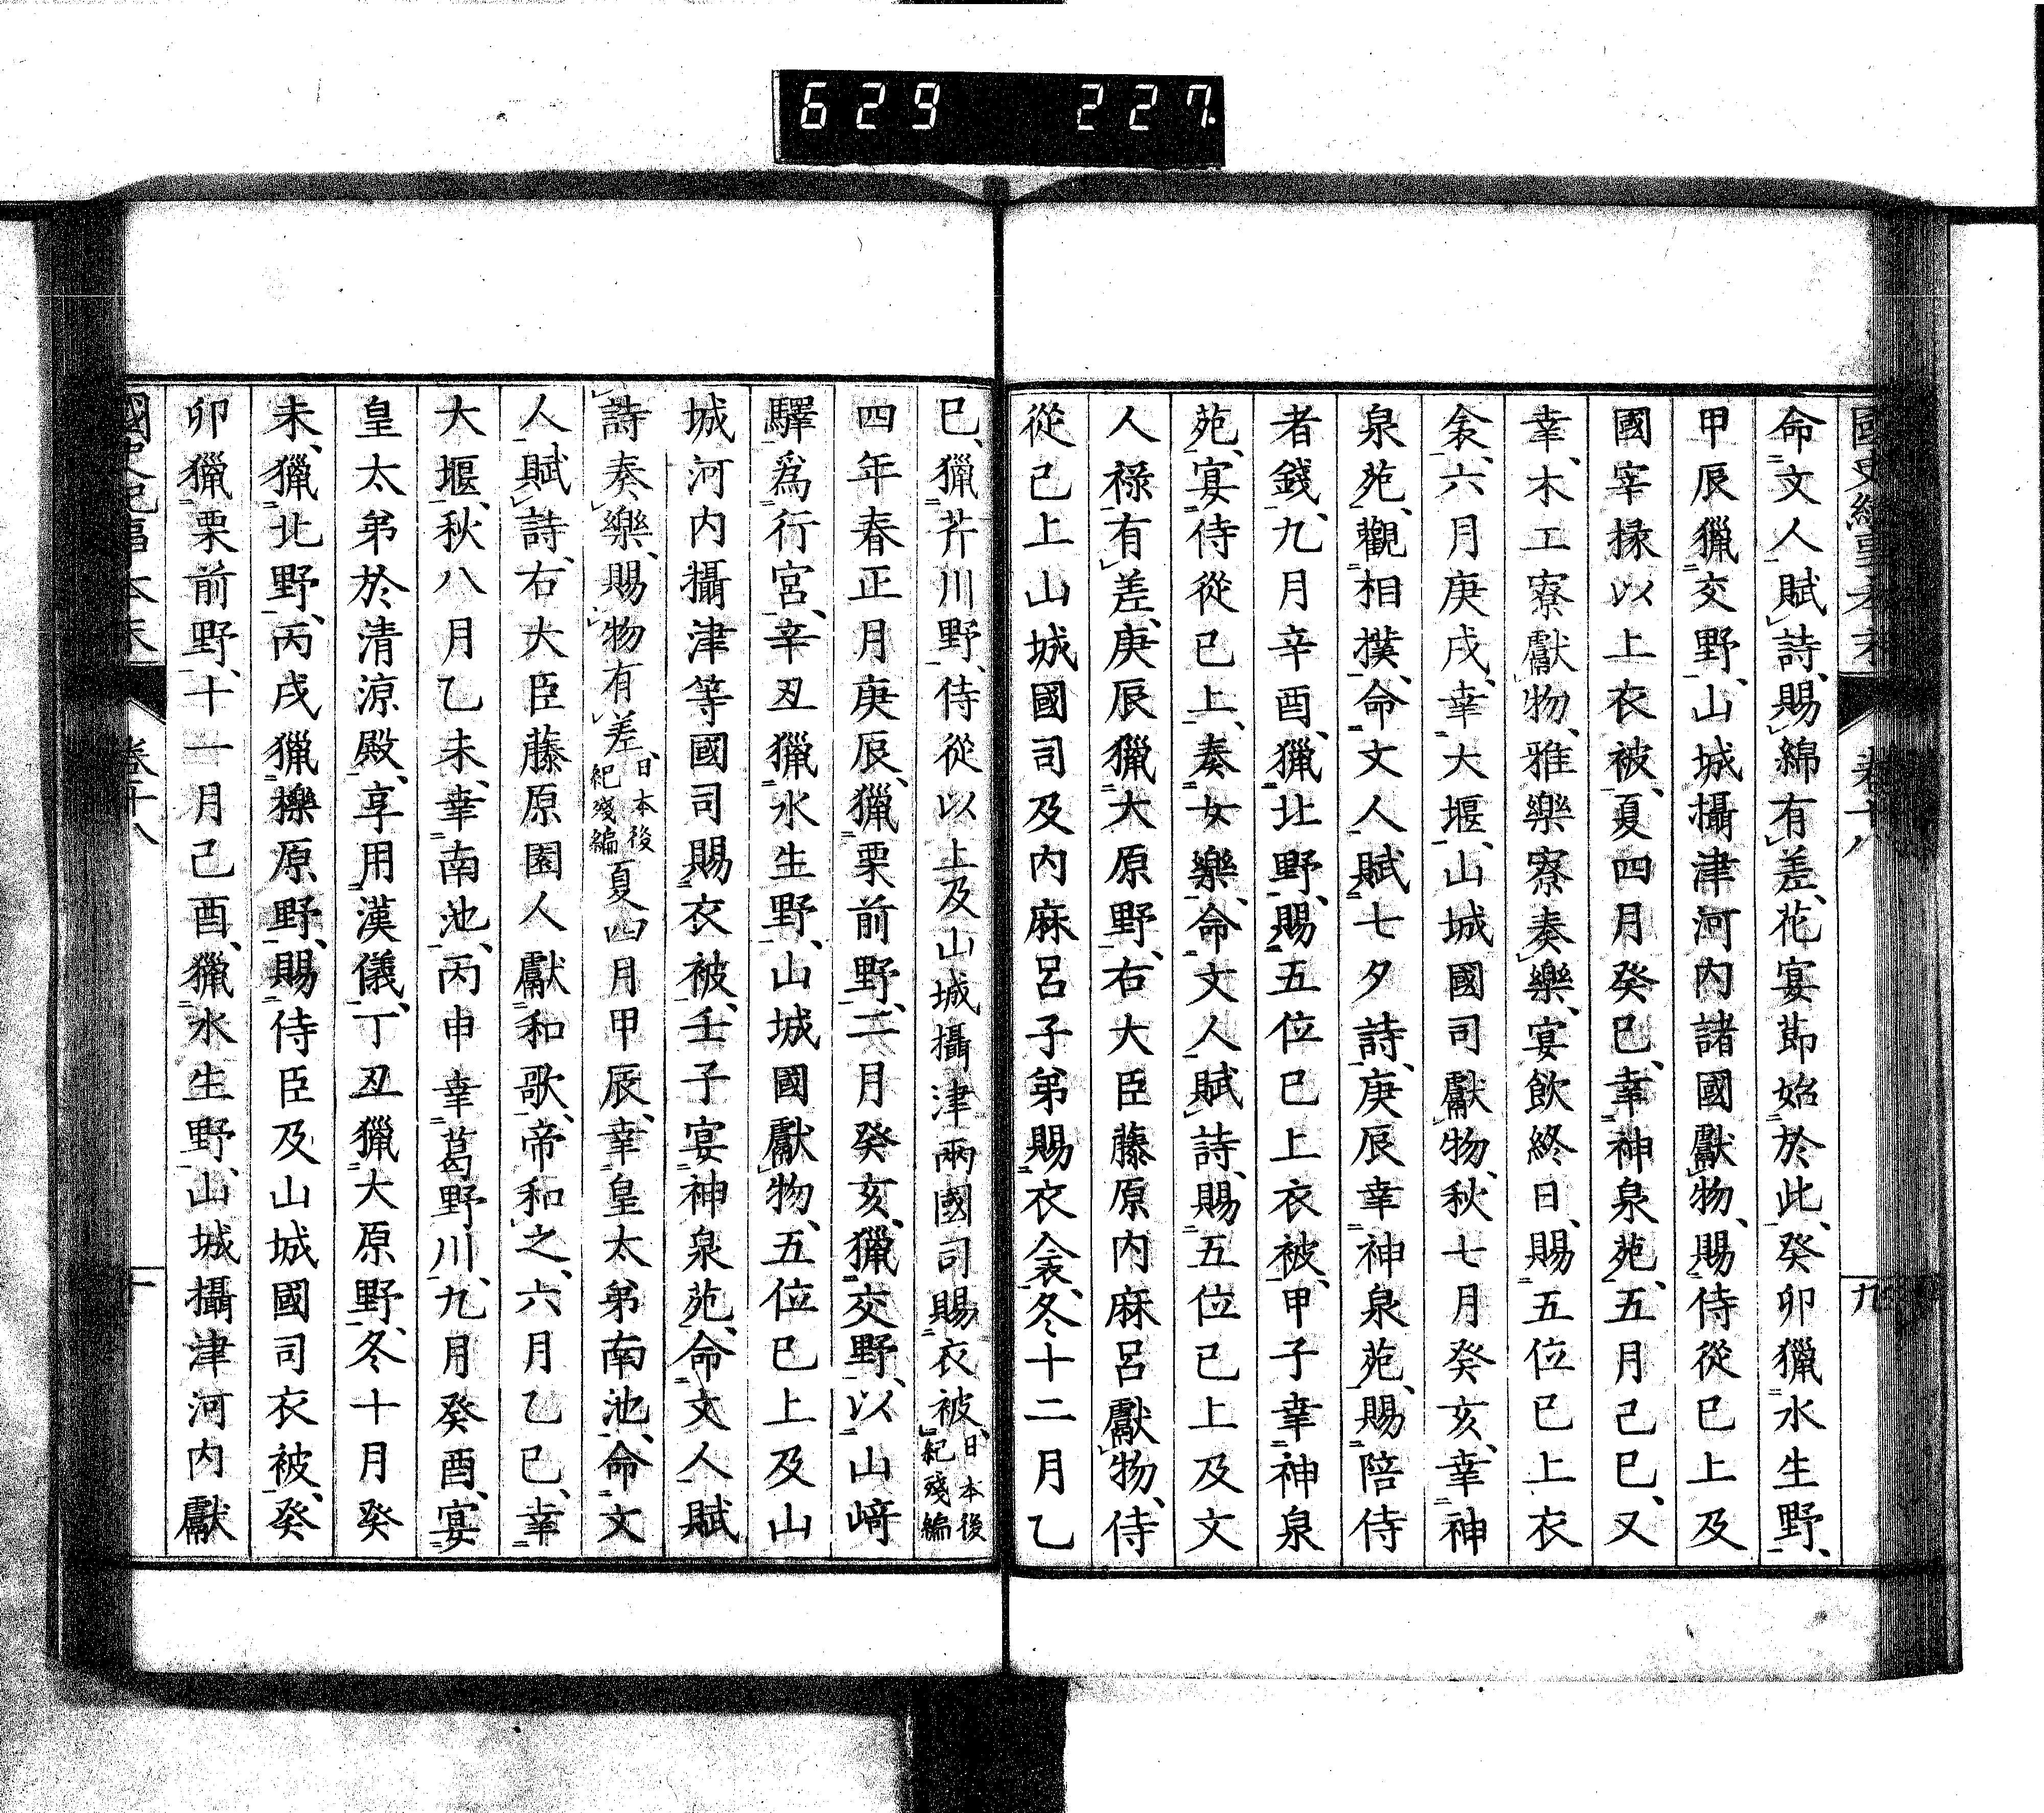 629 227
國史紀事本末 卷十八 九
命文人賦詩、賜綿有差、花宴節始於此、癸卯獵水生野、
甲辰獵交野、山城攝津河內諸國獻物、賜侍從已上及
國宰掾以上衣被、夏四月癸巳、幸神泉苑、五月己巳、又
幸、木工寮獻物、雅樂寮奏樂、宴飲終日、賜五位已上衣
衾、六月庚戌、幸大堰、山城國司獻物、秋七月癸亥、幸神
泉苑、觀相撲、命文人賦七夕詩、庚辰幸神泉苑、賜陪侍
者錢、九月辛酉、獵北野、賜五位已上衣被、甲子幸神泉
苑、宴侍從已上、奏女樂、命文人賦詩、賜五位已上及文
人祿有差、庚辰獵大原野、右大臣藤原內麻呂獻物、侍
從已上山城國司及內麻呂子弟賜衣衾、冬十二月乙
巳、獵芹川野、侍從以上及山城攝津兩國司賜衣被、日本後紀殘編
四年春正月庚辰、獵栗前野、二月癸亥、獵交野、以山﨑
驛爲行宮、辛丑獵水生野、山城國獻物、五位已上及山
城河內攝津等國司賜衣被、壬子宴神泉苑、命文人賦
詩奏樂、賜物有差、日本後紀殘編夏四月甲辰、幸皇太弟南池、命文
人賦詩、右大臣藤原園人獻和歌、帝和之、六月乙巳、幸
大堰、秋八月乙未、幸南池、丙申幸葛野川、九月癸酉、宴
皇太弟於清涼殿、享用漢儀、丁丑獵大原野、冬十月癸
未、獵北野、丙戌獵櫟原野、賜侍臣及山城國司衣被、癸
卯獵栗前野、十一月己酉、獵水生野、山城攝津河內獻
國史紀事本末 卷十八 十